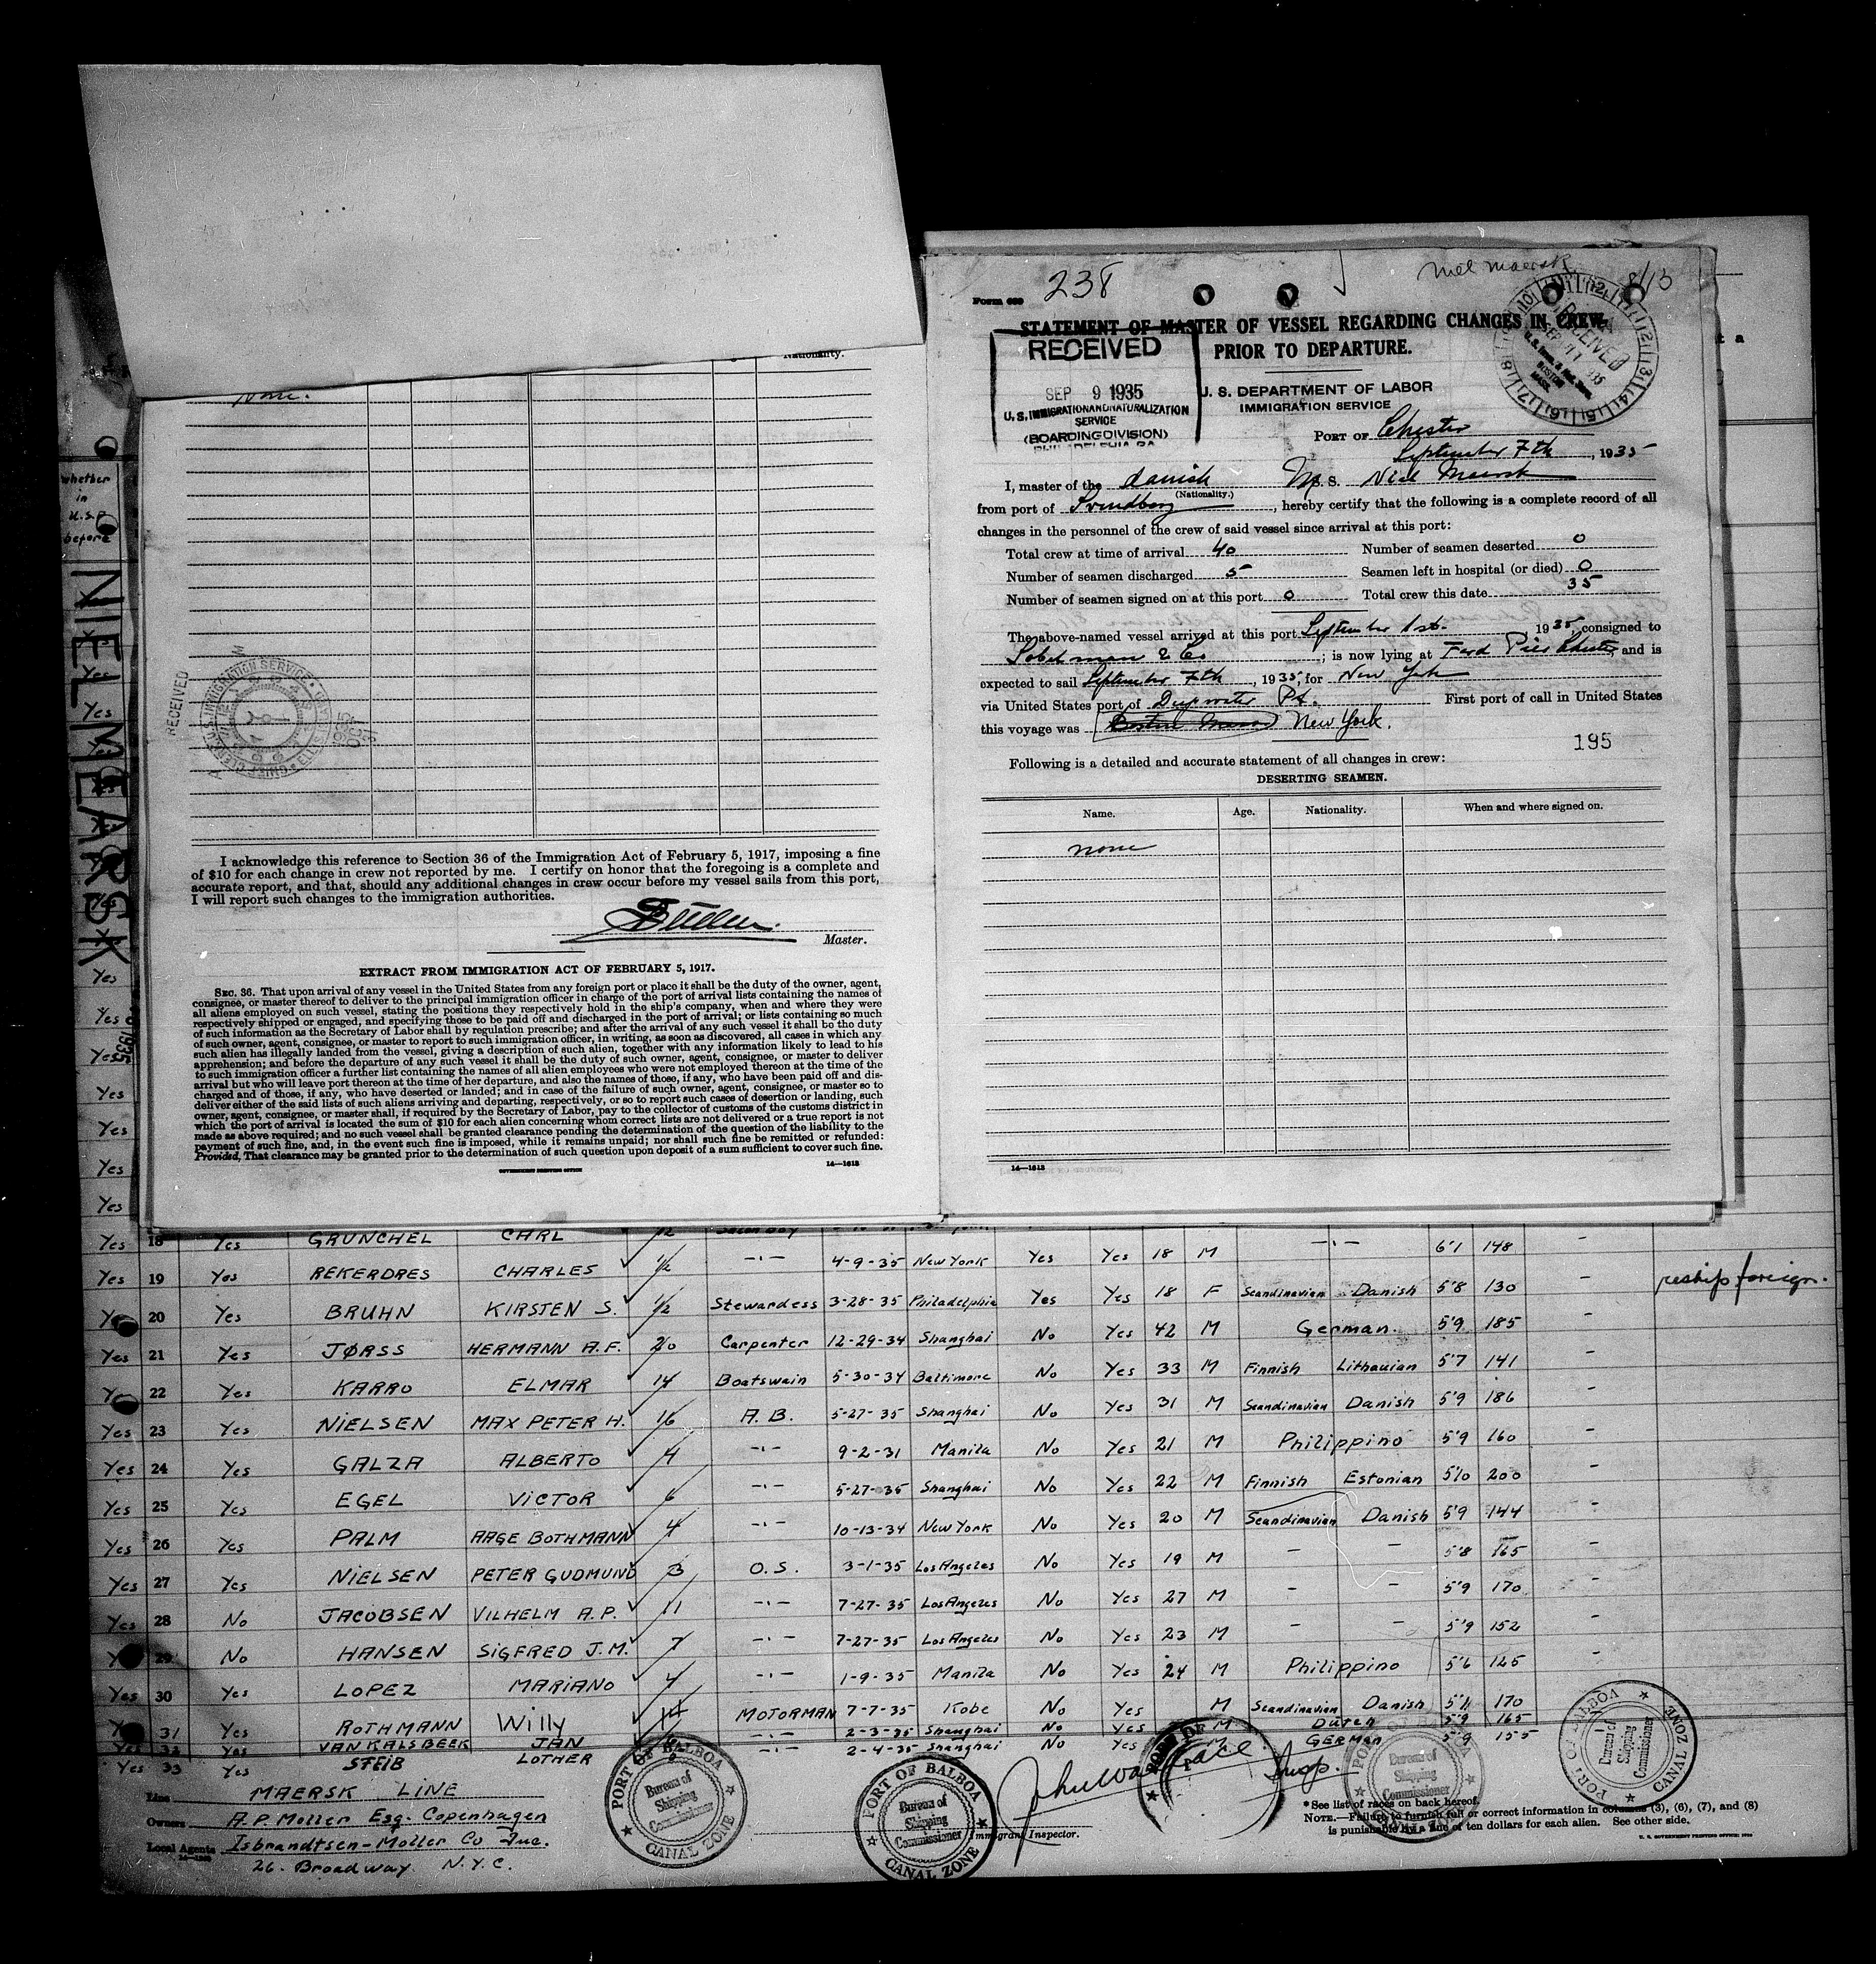 Nationality.
None.
I acknowledge this reference to Section 36 of the Immigration Act of February 5, 1917, imposing a fine
of $10 for each change in crew not reported by me. I certify on honor that the foregoing is a complete and
accurate report, and that, should any additional changes in crew occur before my vessel sails from this port,
I will report such changes to the immigration authorities.
Master.
EXTRACT FROM IMMIGRATION ACT OF FEBRUARY 5, 1917.
SEC. 36. That upon arrival of any vessel in the United States from any foreign port or place it shall be the duty of the owner, agent,
consignee, or master thereof to deliver to the principal immigration officer in charge of the port of arrival lists containing the names of
all aliens employed on such vessel, stating the positions they respectively hold in the ship's company, when and where they were
respectively shipped or engaged, and specifying those to be paid off and discharged in the port of arrival; or lists containing so much
of such information as the Secretary of Labor shall by regulation prescribe; and after the arrival of any such vessel it shall be the duty
of such owner, agent, consignee, or master to report to such immigration officer, in writing, as soon as discovered, all cases in which any
such alien has illegally landed from the vessel, giving a description of such alien, together with any information likely to lead to his
apprehension; and before the departure of any such vessel it shall be the duty of such owner, agent, consignee, or master to deliver
to such immigration officer a further list containing the names of all alien employees who were not employed thereon at the time of the
arrival but who will leave port thereon at the time of her departure, and also the names of those, if any, who have been paid off and dis-
charged and of those, if any, who have deserted or landed; and in case of the failure of such owner, agent, consignee, or master so to
deliver either of the said lists of such aliens arriving and departing, respectively, or so to report such cases of desertion or landing, such
owner, agent, consignee, or master shall, if required by the Secretary of Labor, pay to the collector of customs of the customs district in
which the port of arrival is located the sum of $10 for each alien concerning whom correct lists are not delivered or a true report is not
made as above required; and no such vessel shall be granted clearance pending the determination of the question of the liability to the
payment of such fine, and, in the event such fine is imposed, while it remains unpaid; nor shall such fine be remitted or refunded:
Provided, That clearance may be granted prior to the determination of such question upon deposit of a sum sufficient to cover such fine.
GOVERNMENT PRINTING OFFICE 14—1613
Form 689 238 8/13
STATEMENT OF MASTER OF VESSEL REGARDING CHANGES IN CREW
PRIOR TO DEPARTURE.
RECEIVED
SEP 9 1935
U. S. IMMIGRATION AND NATURALIZATION
SERVICE
(BOARDING DIVISION)
PHILADELPHIA PA.
U. S. DEPARTMENT OF LABOR
IMMIGRATION SERVICE
RECEIVED
BOSTON
MASS.
PORT OF Chester
September 7th, 1935
I, master of the danish (Nationality.) M. S. Niel Maersk
from port of Svendborg, hereby certify that the following is a complete record of all
changes in the personnel of the crew of said vessel since arrival at this port:
Total crew at time of arrival 40 Number of seamen deserted 0
Number of seamen discharged 5 Seamen left in hospital (or died) 0
Number of seamen signed on at this port 0 Total crew this date 35
The above-named vessel arrived at this port September 1st. 1935, consigned to
Sobelman & Co; is now lying at Ford Pier Chester, and is
expected to sail September 7th, 1935, for New York
via United States port of Deepwater Pt. First port of call in United States
this voyage was Boston Mass New York.
195
Following is a detailed and accurate statement of all changes in crew:
DESERTING SEAMEN.
Name. Age. Nationality. When and where signed on.
none
14—1613
whether
in
U.S.A
before
NIEL MEARSK
1935
RECEIVED
Yes 18 Yes GRUNCHEL CARL 1/2
Yes 19 Yes REKERDRES CHARLES 1/2 -"- 4-9-35 New York Yes Yes 18 M -"- 6'1 148 -
reship foreign.
Yes 20 Yes BRUHN KIRSTEN S. 1/2 Stewardess 3-28-35 Philadelphia Yes Yes 18 F Scandinavian Danish 5'8 130 -
Yes 21 Yes JØRSS HERMANN A.F. 20 Carpenter 12-29-34 Shanghai No Yes 42 M German 5'9 185 -
Yes 22 Yes KARRO ELMAR 14 Boatswain 5-30-34 Baltimore No Yes 33 M Finnish Lithauian 5'7 141 -
Yes 23 Yes NIELSEN MAX PETER H. 16 A.B. 5-27-35 Shanghai No Yes 31 M Scandinavian Danish 5'9 186 -
Yes 24 Yes GALZA ALBERTO 4 -"- 9-2-31 Manila No Yes 21 M Philippino 5'9 160 -
Yes 25 Yes EGEL VICTOR 6 -"- 5-27-35 Shanghai No Yes 22 M Finnish Estonian 5'10 200 -
Yes 26 Yes PALM AAGE BOTHMANN 4 -"- 10-13-34 New York No Yes 20 M Scandinavian Danish 5'9 144 -
Yes 27 Yes NIELSEN PETER GUDMUND 3 O.S. 3-1-35 Los Angeles No Yes 19 M - - 5'8 165 -
Yes 28 No JACOBSEN VILHELM A.P. 11 -"- 7-27-35 Los Angeles No Yes 27 M - - 5'9 170 -
29 No HANSEN SIGFRED J.M. 7 -"- 7-27-35 Los Angeles No Yes 23 M - - 5'9 152 -
Yes 30 Yes LOPEZ MARIANO 4 -"- 1-9-35 Manila No Yes 24 M Philippino 5'6 125 -
31 Yes ROTHMANN Willy 14 MOTORMAN 7-7-35 Kobe No Yes M Scandinavian Danish 5'11 170
Yes 32 Yes VAN KALSBEEK JAN -"- 2-3-35 Shanghai No Yes M Dutch 5'9 165
Yes 33 Yes STEIB LOTHER -"- 2-4-35 Shanghai No Yes M GERMAN 5'9 155
Line MAERSK LINE
Owners A.P. Moller Esq. Copenhagen
Local Agents Isbrandtsen-Moller Co Inc.
26. Broadway N.Y.C.
PORT OF BALBOA
Bureau of
Shipping
Commissioner
CANAL ZONE
PORT OF BALBOA
Bureau of
Shipping
Commissioner
CANAL ZONE
Immigrant Inspector.
PORT OF
PORT OF BALBOA
Bureau of
Shipping
Commissioner
PORT OF BALBOA
Bureau of
Shipping
Commissioner
CANAL ZONE
*See list of races on back hereof.
NOTE.—Failure to furnish full or correct information in columns (3), (6), (7), and (8)
is punishable by a fine of ten dollars for each alien. See other side.